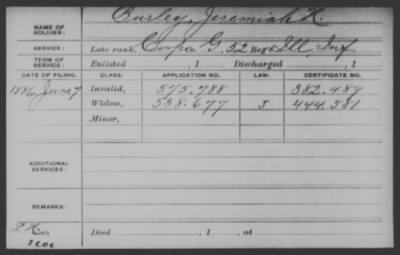 NAME OF SOLDIER: Burley, Jeremiah H.
SERVICE: Late rank, Corp Co. G, 52 Reg't Ill. Inf
TERM OF SERVICE: Enlisted , 1 Discharged , 1
DATE OF FILING. CLASS. APPLICATION NO. LAW. CERTIFICATE NO.
1886 June 7 Invalid, 575.788 382.489
Widow, 538.677 J 444.581
Minor,
ADDITIONAL SERVICES:
REMARKS:
Died , 1 , at